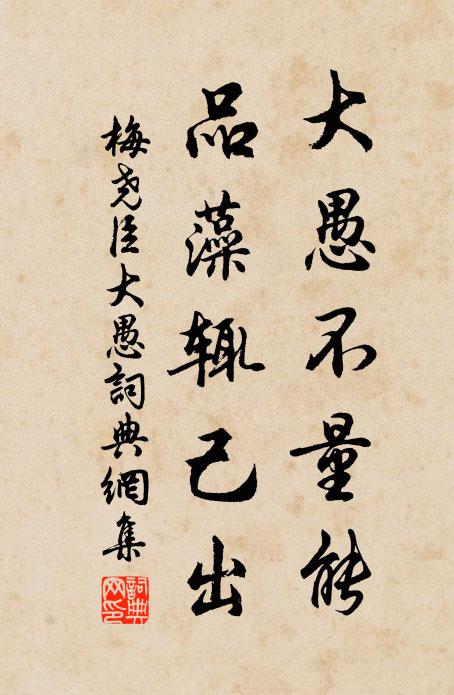 大愚不量能
品藻辄己出
梅尧臣大愚詞典網集
詞典网印